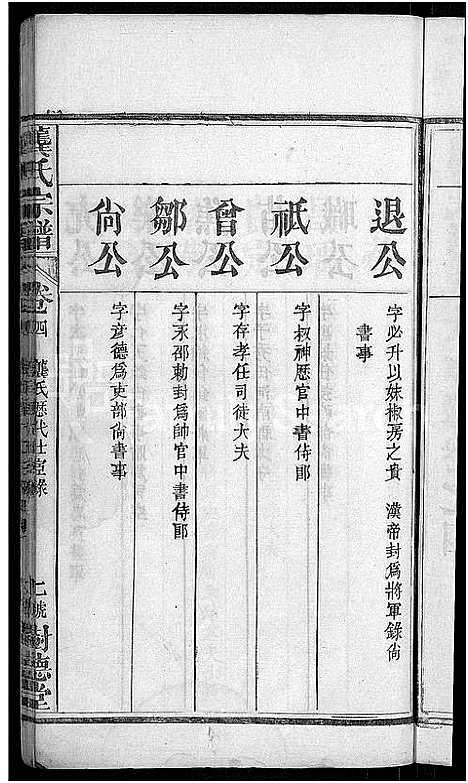 退公
字必升以妹椒房之貴 漢帝封為將軍錄尙
書事
祇公
字叔神歷官中書侍郎
曾公
字存孝任司徒大夫
鄒公
字永邵勅封為帥官中書侍郎
尙公
字彥德為吏部尙書事
龔氏宗譜
卷四
龔氏歷代仕宦錄
七號
樹德堂